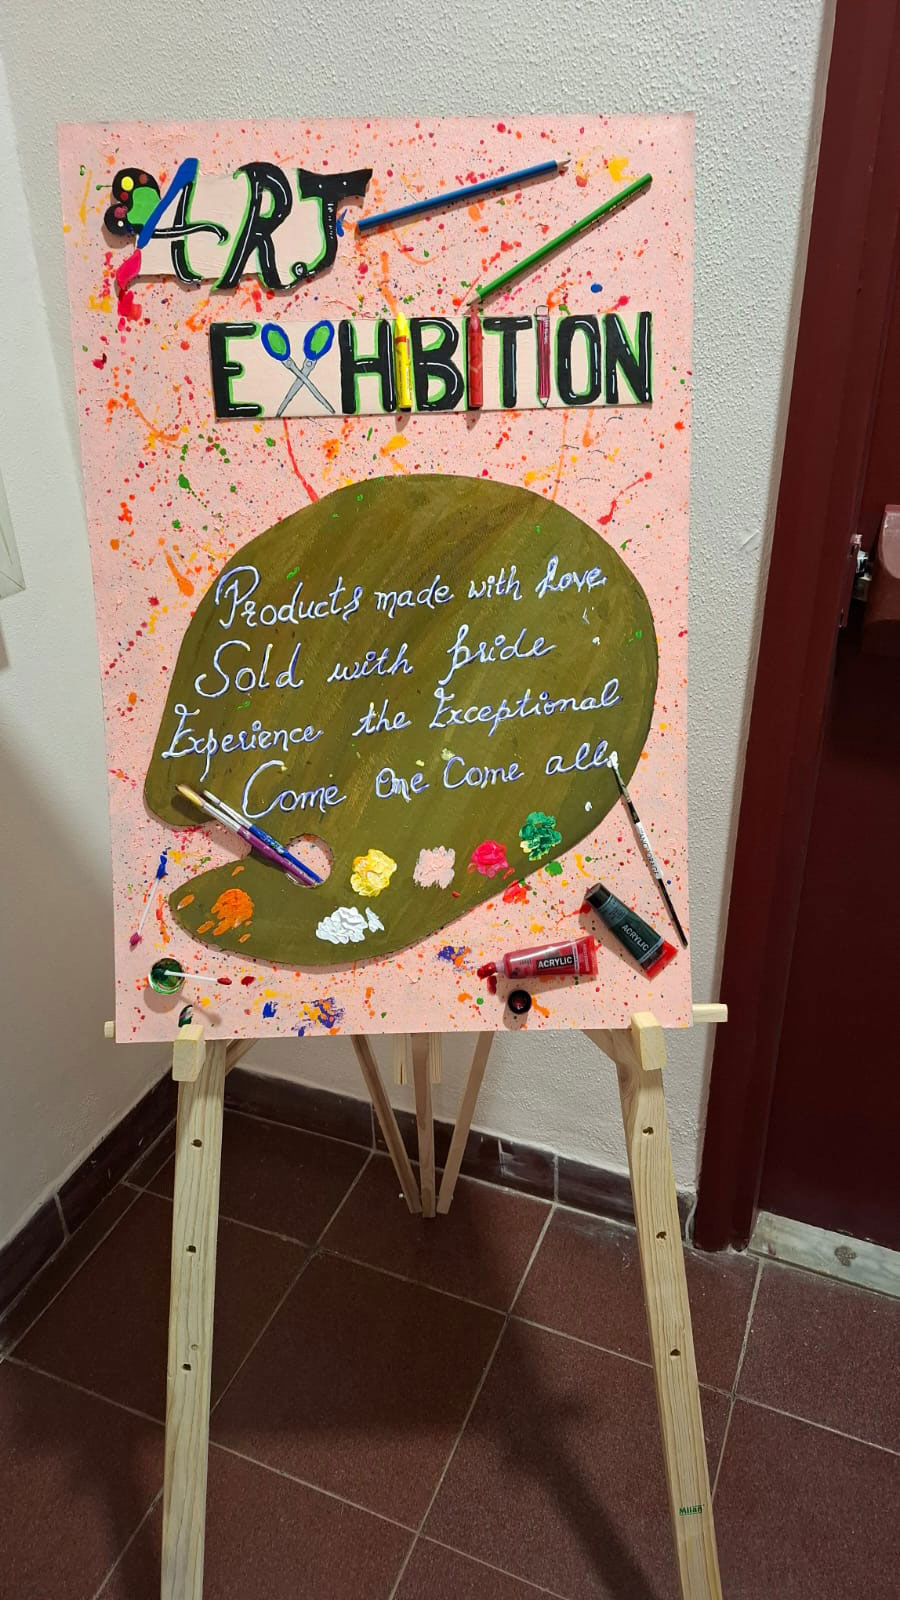 ART
EXHIBITION
Products made with Love
Sold with pride
Experience the Exceptional
Come One Come all
ACRYLIC
ACRYLIC
Milan